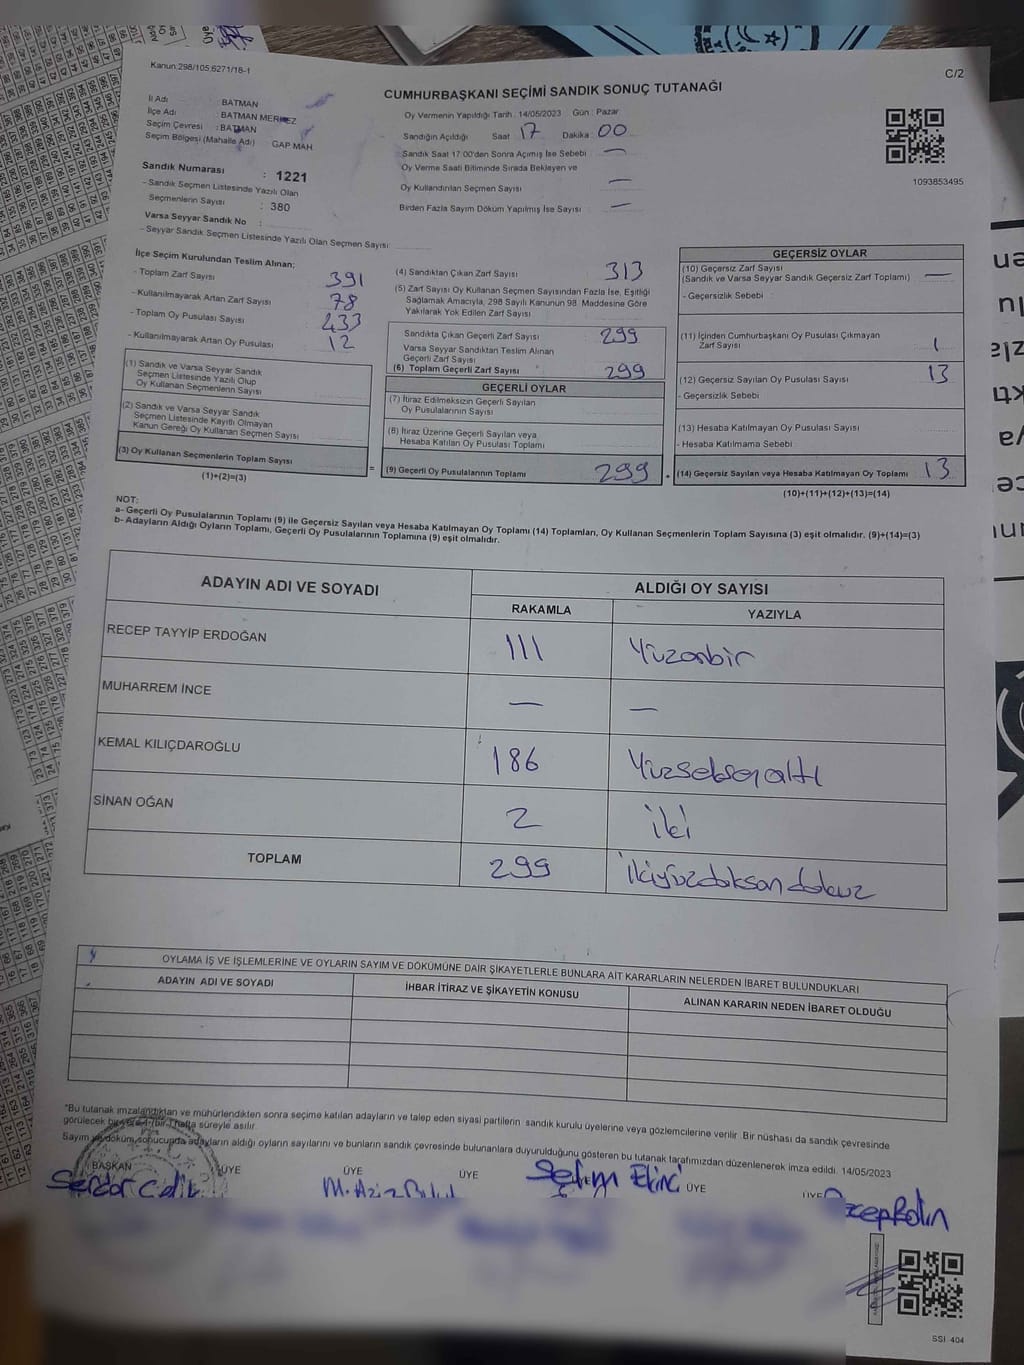 Kanun:298/105,6271/18-1
C/2
CUMHURBAŞKANI SEÇİMİ SANDIK SONUÇ TUTANAĞI
İl Adı : BATMAN
İlçe Adı : BATMAN MERKEZ
Seçim Çevresi : BATMAN
Seçim Bölgesi (Mahalle Adı) GAP MAH
Sandık Numarası : 1221
- Sandık Seçmen Listesinde Yazılı Olan
Seçmenlerin Sayısı : 380
Varsa Seyyar Sandık No :
- Seyyar Sandık Seçmen Listesinde Yazılı Olan Seçmen Sayısı:
Oy Vermenin Yapıldığı Tarih : 14/05/2023 Gün : Pazar
Sandığın Açıldığı Saat 17 Dakika 00
Sandık Saat 17:00'den Sonra Açımış İse Sebebi : —
Oy Verme Saati Bitiminde Sırada Bekleyen ve
Oy Kullandırılan Seçmen Sayısı —
Birden Fazla Sayım Döküm Yapılmış İse Sayısı —
1093853495
İlçe Seçim Kurulundan Teslim Alınan;
- Toplam Zarf Sayısı 391
- Kullanılmayarak Artan Zarf Sayısı 78
- Toplam Oy Pusulası Sayısı 433
- Kullanılmayarak Artan Oy Pusulası 12
(1) Sandık ve Varsa Seyyar Sandık
Seçmen Listesinde Yazılı Olup
Oy Kullanan Seçmenlerin Sayısı
(2) Sandık ve Varsa Seyyar Sandık
Seçmen Listesinde Kayıtlı Olmayan
Kanun Gereği Oy Kullanan Seçmen Sayısı
(3) Oy Kullanan Seçmenlerin Toplam Sayısı
(1)+(2)=(3)
=
(4) Sandıktan Çıkan Zarf Sayısı 313
(5) Zarf Sayısı Oy Kullanan Seçmen Sayısından Fazla İse, Eşitliği
Sağlamak Amacıyla, 298 Sayılı Kanunun 98. Maddesine Göre
Yakılarak Yok Edilen Zarf Sayısı
Sandıkta Çıkan Geçerli Zarf Sayısı 299
Varsa Seyyar Sandıktan Teslim Alınan
Geçerli Zarf Sayısı
(6) Toplam Geçerli Zarf Sayısı 299
GEÇERLİ OYLAR
(7) İtiraz Edilmeksizin Geçerli Sayılan
Oy Pusulalarının Sayısı
(8) İtiraz Üzerine Geçerli Sayılan veya
Hesaba Katılan Oy Pusulası Toplamı
(9) Geçerli Oy Pusulalarının Toplamı 299
+
GEÇERSİZ OYLAR
(10) Geçersiz Zarf Sayısı
(Sandık ve Varsa Seyyar Sandık Geçersiz Zarf Toplamı) —
- Geçersizlik Sebebi
(11) İçinden Cumhurbaşkanı Oy Pusulası Çıkmayan
Zarf Sayısı 1
(12) Geçersiz Sayılan Oy Pusulası Sayısı 13
- Geçersizlik Sebebi
(13) Hesaba Katılmayan Oy Pusulası Sayısı
- Hesaba Katılmama Sebebi
(14) Geçersiz Sayılan veya Hesaba Katılmayan Oy Toplamı 13
(10)+(11)+(12)+(13)=(14)
NOT:
a- Geçerli Oy Pusulalarının Toplamı (9) ile Geçersiz Sayılan veya Hesaba Katılmayan Oy Toplamı (14) Toplamları, Oy Kullanan Seçmenlerin Toplam Sayısına (3) eşit olmalıdır. (9)+(14)=(3)
b- Adayların Aldığı Oyların Toplamı, Geçerli Oy Pusulalarının Toplamına (9) eşit olmalıdır.
ADAYIN ADI VE SOYADI ALDIĞI OY SAYISI
RAKAMLA YAZIYLA
RECEP TAYYİP ERDOĞAN 111 Yüzonbir
MUHARREM İNCE — —
KEMAL KILIÇDAROĞLU 186 Yüzseksenaltı
SİNAN OĞAN 2 iki
TOPLAM 299 ikiyüzdoksan dokuz
OYLAMA İŞ VE İŞLEMLERİNE VE OYLARIN SAYIM VE DÖKÜMÜNE DAİR ŞİKAYETLERLE BUNLARA AİT KARARLARIN NELERDEN İBARET BULUNDUKLARI
ADAYIN ADI VE SOYADI İHBAR İTİRAZ VE ŞİKAYETİN KONUSU ALINAN KARARIN NEDEN İBARET OLDUĞU
*Bu tutanak imzalandıktan ve mühürlendikten sonra seçime katılan adayların ve talep eden siyasi partilerin sandık kurulu üyelerine veya gözlemcilerine verilir. Bir nüshası da sandık çevresinde
görülecek bir yere 1 (bir) hafta süreyle asılır.
Sayım ve döküm sonucunda adayların aldığı oyların sayılarını ve bunların sandık çevresinde bulunanlara duyurulduğunu gösteren bu tutanak tarafımızdan düzenlenerek imza edildi. 14/05/2023
BAŞKAN ÜYE ÜYE ÜYE ÜYE ÜYE
Serdar Çelik M. Aziz Bulut Selim Ekinci Recep Bolin
SSİ 404